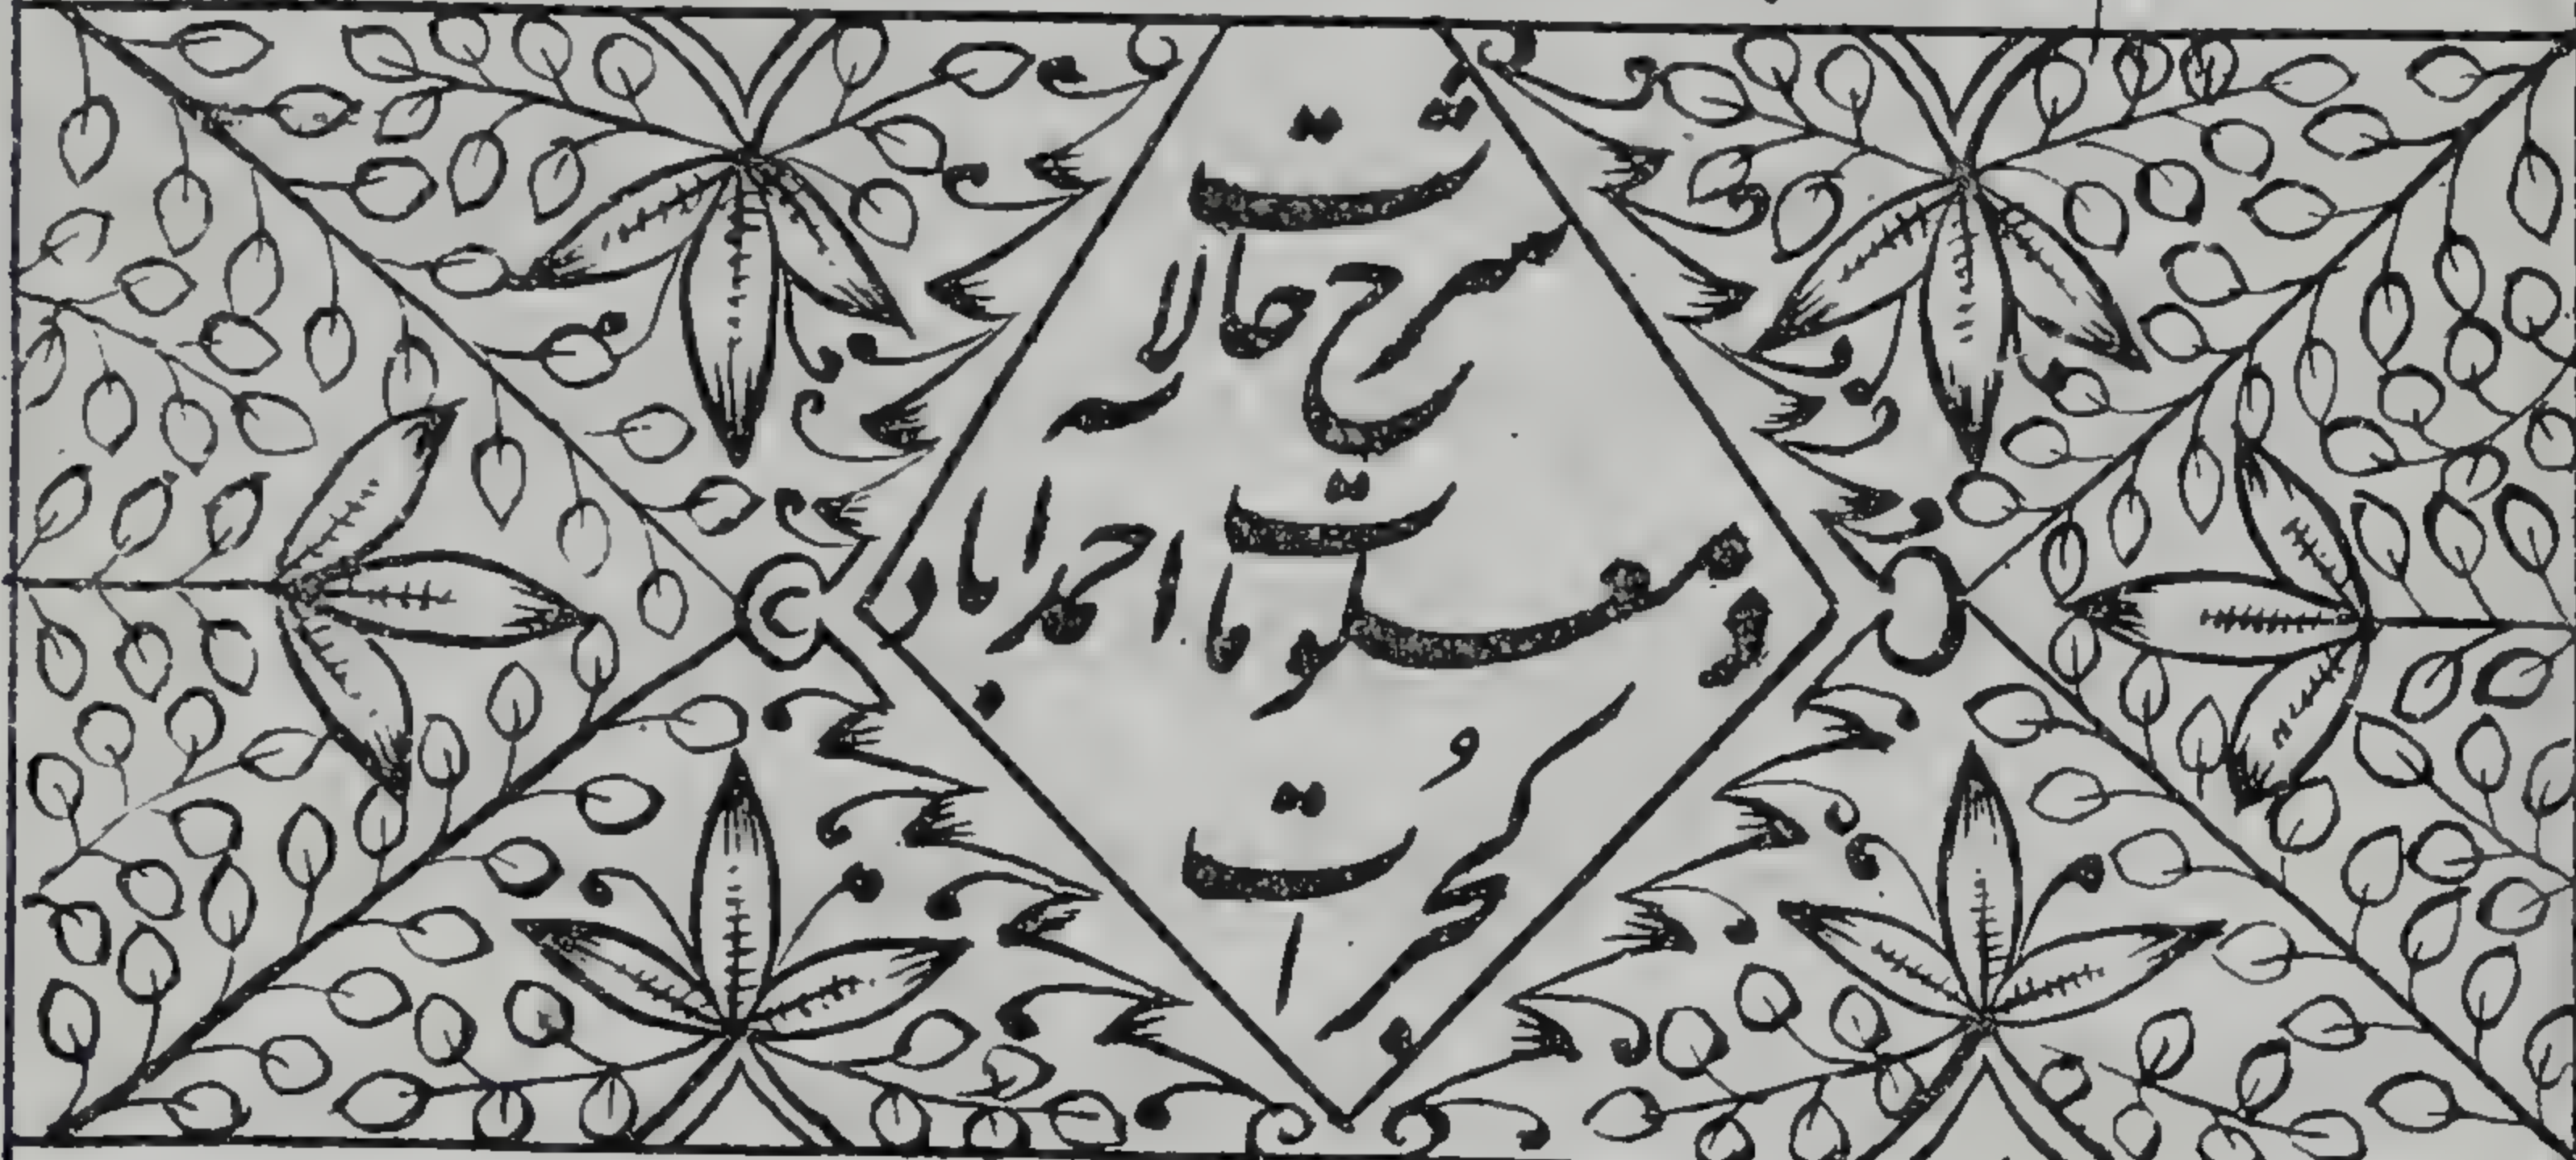 شرح حالات
و معلومات احمدآباد
گجرات